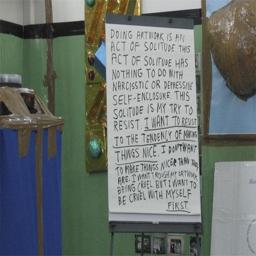 DOING ARTWORK IS AN
ACT OF SOLITUDE THIS
ACT OF SOLITUDE HAS
NOTHING TO DO WITH
NARCISTIC OR DEPRESSIVE
SELF-ENCLOSURE. THIS
SOLITUDE IS MY TRY TO
RESIST. I WANT TO RESIST
TO THE TENDENCY OF MAKING
THINGS NICE. I DON'T WANT
TO MAKE THINGS NICER THAN THEY
ARE. I WANT THROUGH MY ARTWORK
BEING CRUEL BUT I WANT TO
BE CRUEL WITH MYSELF
FIRST